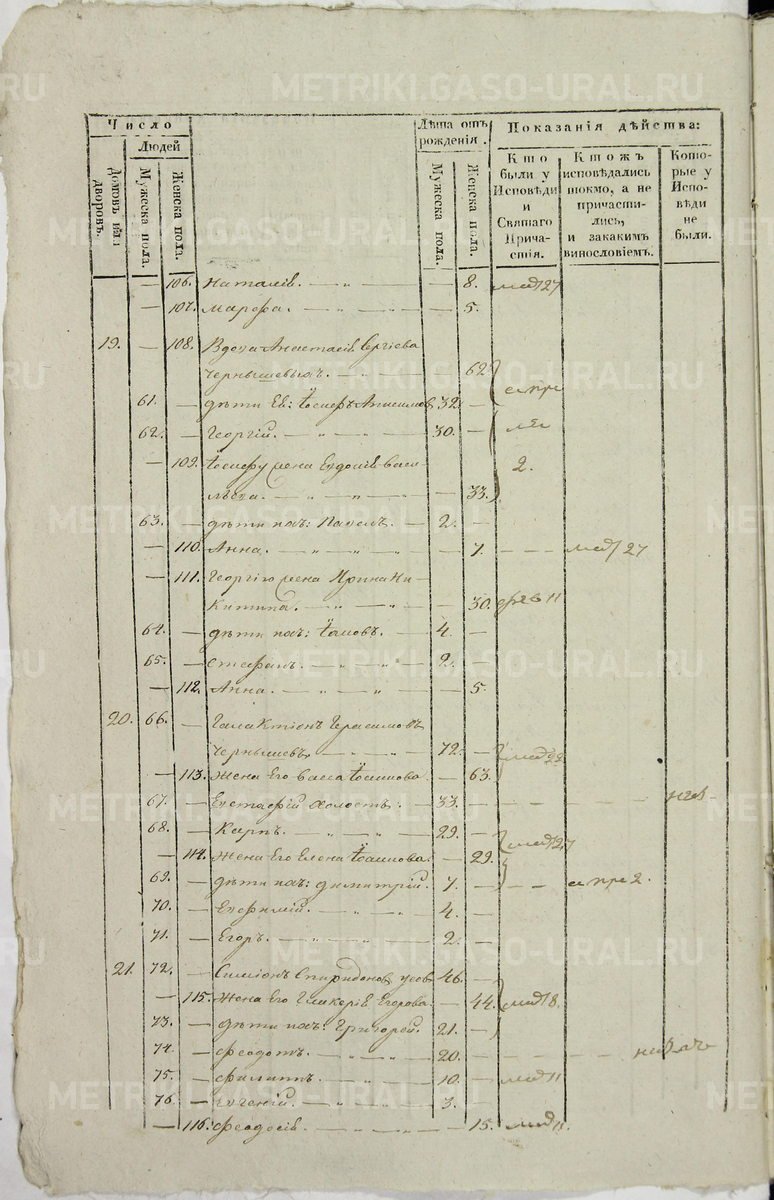 METRIKI.GASO-URAL.RU
Число
Людей
Домовъ или дворовъ.
Мужеска пола.
Женска пола.
Лѣта отъ рожденія.
Мужеска пола.
Женска пола.
Показанія дѣйства:
Кто были у Исповѣди и Святаго Причастія.
Ктожъ исповѣдались токмо, а не причастились, и закакимъ винословіемъ.
Которые у Исповѣди не были.
— 106. Наталія. — „ — — 8.
— 107. Марфа. — „ — „ — — 5.
19. — 108. Вдова Анастасія Сергіева
Чернышевыхъ. — „ — 62.
61. — дѣти Ея: Іосифъ 32. —
62. — Георгій. — „ — „ — 30. —
— 109. Іосифу жена Евдокія Васи-
льева. — „ — „ — — 33. 2.
63. — дѣти ихъ: Павелъ. — 2. —
— 110. Анна. — „ — „ — — 7. — — 27
— 111. Георгію жена Ирина Ни-
китина. — „ — „ — — 30. 11
64. — дѣти ихъ: Іаковъ. — 4. —
65. — Стефанъ. — „ — „ — 2. —
— 112. Анна. — „ — „ — — 5.
20. 66. — Галактіонъ Герасимовъ
Чернышевъ. — „ — „ — 72. —
— 113. Жена Его Васса — 63.
67. — Евстафій холостъ. — 33. —
68. — Карпъ. — „ — „ — 29. —
— 114. Жена Его Елена — 29.
69. — дѣти ихъ: Димитрій. 7. — — 2.
70. — Евфимій. — „ — „ — 4. —
71. — Егоръ. — „ — „ — 2. —
21. 72. — Симіонъ Спиридоновъ Усовъ 46. —
— 115. Жена Его Гликерія Егорова. — 44. 18.
73. — дѣти ихъ: Григорей. 21. —
74. — Феодотъ. — „ — „ — 20. —
75. — Филиппъ. — „ — „ — 10. — 11
76. — Евгеній. — „ — „ — 3. —
— 116. Феодосія. — „ — „ — — 15. 11.